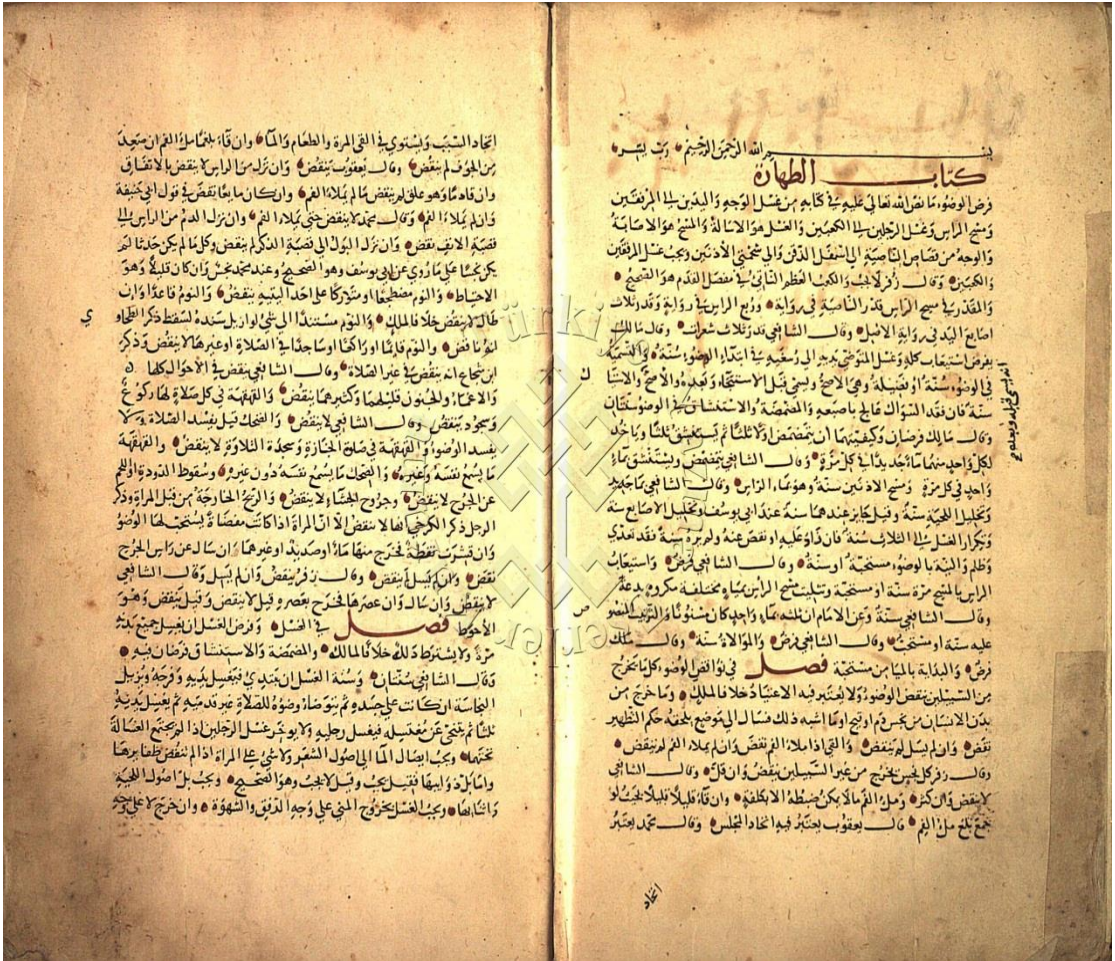 بسم الله الرحمن الرحيم رب يسر
كتاب الطهارة
فرض الوضوء ما نص الله تعالى عليه في كتابه من غسل الوجه واليدين الى المرفقين
ومسح الراس وغسل الرجلين الى الكعبين والغسل هو الاسالة والمسح هو الاصابة
والوجه من قصاص الناصية الى اسفل الذقن والى شحمتي الاذنين ويجب غسل المرفقين
والكعبين وقال زفر لا يجب والكعب العظم الناتئ في مفصل القدم هو الصحيح
والمقدر في مسح الراس قدر الناصية في رواية وربع الراس في رواية وقدر ثلاث
اصابع اليد في رواية الاصل وقال الشافعي قدر ثلاث شعرات وقال مالك
يفرض استيعاب كله وغسل المتوضي يديه الى رسغيه في ابتداء الوضوء سنة والتسمية
في الوضوء سنة او فضيلة وهي الاصح ويسمي قبل الاستنجاء وبعده والاصح والاستيا
سنة فان فقد السواك عالج باصبعه والمضمضة والاستنشاق في الوضوء سنتان
وقال مالك فرضان وكيفيتهما ان يتمضمض اولا ثلثا ثم يستنشق ثلثا وياخذ
لكل واحد منهما ماء جديدا في كل مرة وقال الشافعي يتمضمض ويستنشق بماء
واحد في كل مرة ومسح الاذنين سنة وهو بماء الراس وقال الشافعي بماء جديد
وتخليل اللحية سنة وقيل جايز عندهما سنة عند ابي يوسف وتخليل الاصابع سنة
وتكرار الغسل الى الثلاث سنة فان زاد عليه او نقص عنه ولم يره سنة فقد تعدى
وظلم والنية بالوضوء مستحبة او سنة وقال الشافعي فرض واستيعاب
الراس بالمسح مرة سنة او مستحبة وتثليث مسح الراس بمياه مختلفة مكروه بدعة
وقال الشافعي سنة وعن الامام ان ثلثه بماء واحد كان مسنونا والترتيب المنصو
عليه سنة او مستحب وقال الشافعي فرض والموالاة سنة وقال مالك
فرض والبداية بالميامن مستحبة فصل في نواقض الوضوء كل ما يخرج
من السبيلين ينقض الوضوء ولا يعتبر فيه الاعتياد خلافا لمالك وما خرج من
بدن الانسان من نجس دم او قيح او ما اشبه ذلك فسال الى موضع يلحقه حكم التطهير
نقض وان لم يسل لم ينقض والقي اذا ملاء الفم نقض وان لم يملاء الفم لم ينقض
وقال زفر كل نجس يخرج من غير السبيلين ينقض وان قل وقال الشافعي
لا ينقض وان كثر وملء الفم ما لا يمكن ضبطه الا بكلفة وان قاء قليلا قليلا بحيث لو
جمع بلغ ملء الفم قال يعقوب يعتبر فيه اتحاد المجلس وقال محمد يعتبر
اتحاد
اتحاد السبب ويستوي في القي المرة والطعام والماء وان قاء بلغما ملء الفم ان صعد
من الجوف لم ينقض وقال يعقوب ينقض وان نزل من الراس لا ينقض بالاتفاق
وان قاء دما وهو علق لم ينقض ما لم يملاء الفم وان كان مايعا نقض في قول ابي حنيفة
وان لم يملاء الفم وقال محمد لا ينقض حتى يملاء الفم وان نزل الدم من الراس الى
قصبة الانف نقض وان نزل البول الى قصبة الذكر لم ينقض وكل ما لم يكن حدثا لم
يكن نجسا على ما روي عن ابي يوسف وهو الصحيح وعند محمد نجس وان كان قليلا وهو
الاحتياط والنوم مضطجعا او متوركا على احد اليتيه ينقض والنوم قاعدا وان
طال لا ينقض خلافا لمالك والنوم مستندا الى شي لو ازيل سنده لسقط ذكر الطحاو
ي
انه ناقض والنوم قايما او راكعا او ساجدا في الصلاة او غيرها لا ينقض وذكر
ابن شجاع انه ينقض في غير الصلاة وقال الشافعي ينقض في الاحوال كلها
والاغماء والجنون قليلهما وكثيرهما ينقض والقهقهة في كل صلاة لها ركوع
وسجود ينقض وقال الشافعي لا ينقض والضحك قيل يفسد الصلاة ولا
يفسد الوضوء والقهقهة في صلاة الجنازة وسجدة التلاوة لا ينقض والقهقهة
ما يسمع نفسه وغيره والضحك ما يسمع نفسه دون غيره وسقوط الدودة او اللحم
عن الجرح لا ينقض وخروج الجشاء لا ينقض والريح الخارجة من قبل المراة وذكر
الرجل ذكر الكرخي انها لا ينقض الا ان المراة اذا كانت مفضاة يستحب لها الوضو
وان قشرت نفطة فخرج منها ماء او صديد او غيرهما ان سال عن راس الجرح
نقض وان لم يسل لم ينقض وقال زفر ينقض وان لم يسل وقال الشافعي
لا ينقض وان سال وان عصرها فخرج بعصره قيل لا ينقض وقيل ينقض وهو
الاحوط فصل في الغسل وفرض الغسل ان يغسل جميع بدنه
مرة ولا يشترط دلكه خلافا لمالك والمضمضة والاستنشاق فرضان فيه
وقال الشافعي سنتان وسنة الغسل ان يبتدي فيغسل يديه وفرجه ويزيل
النجاسة ان كانت على جسده ثم يتوضاء وضوءه للصلاة غير قدميه ثم يغسل بدنه
ثلثا ثم يتنحى عن مغتسله فيغسل رجليه ولا يوخر غسل الرجلين اذا لم يجتمع الغسالة
تحتهما ويجب ايصال الماء الى اصول الشعر ولا شي على المراة اذا لم تنقض ظفايرها
واما بل ذوايبها فقيل يجب وقيل لا يجب وهو الصحيح ويجب بل اصول اللحية
واثنايها ويجب الغسل بخروج المني على وجه الدفق والشهوة وان خرج لا على وجه